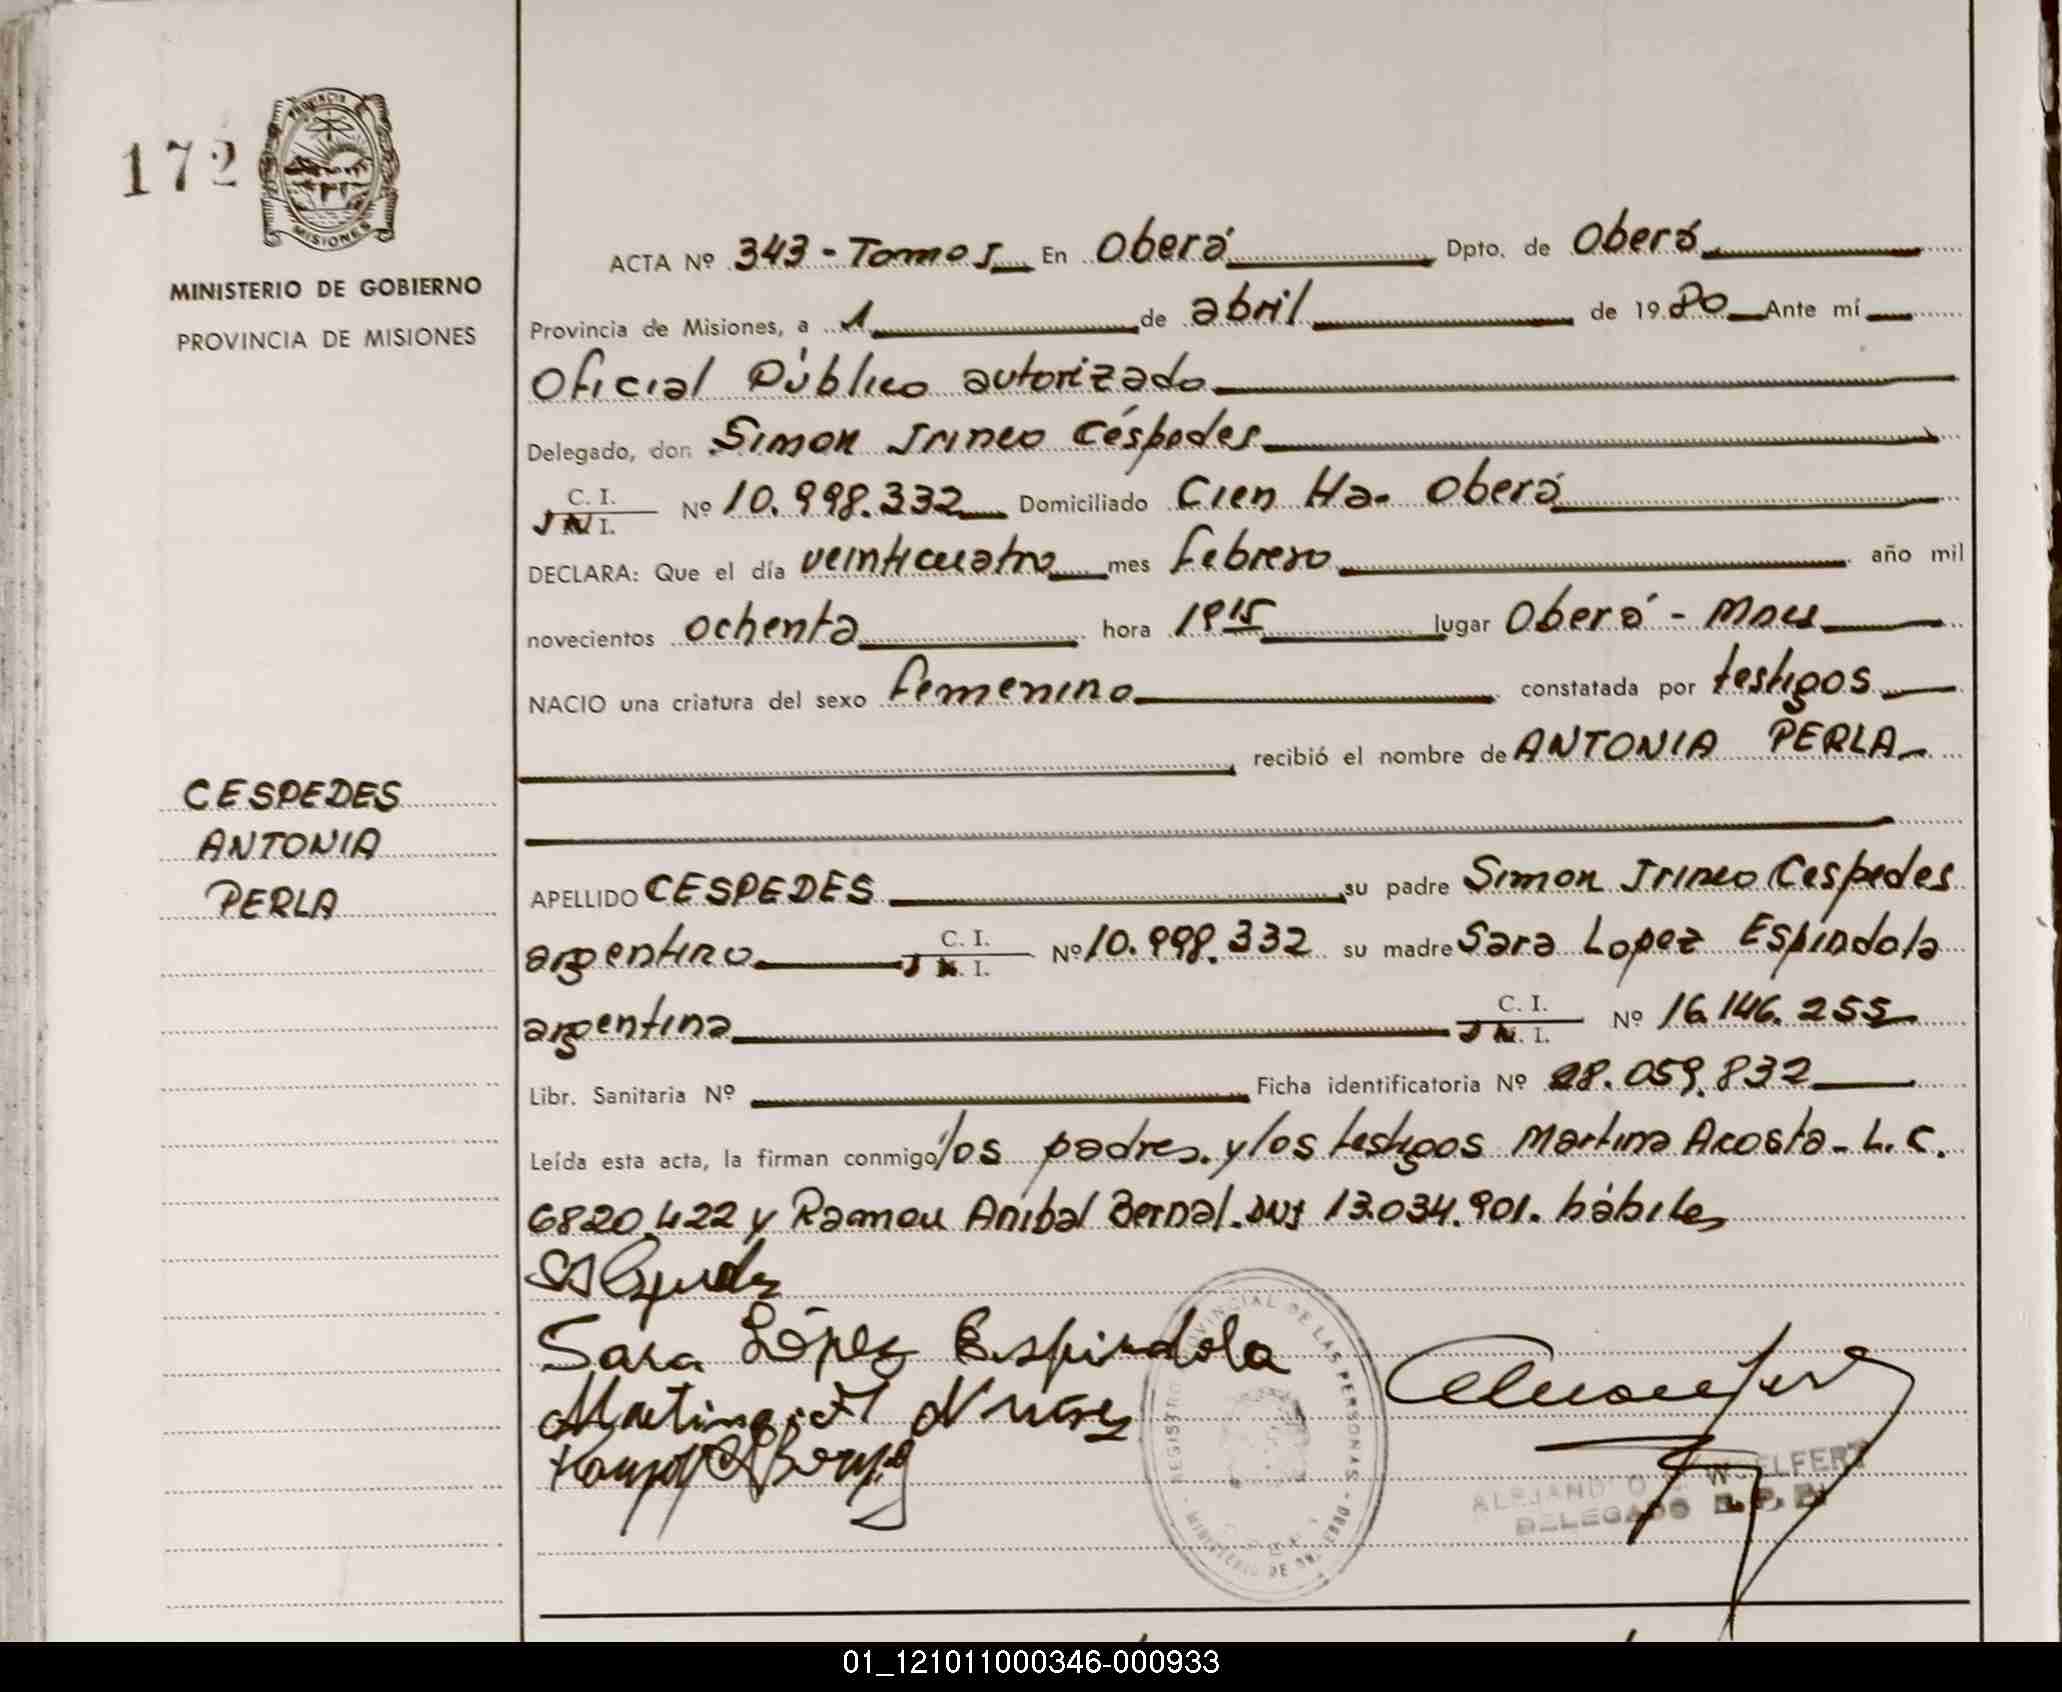 172
PROVINCIA
MISIONES
MINISTERIO DE GOBIERNO
PROVINCIA DE MISIONES
CESPEDES
ANTONIA
PERLA
ACTA Nº 343 - Tomo I En Oberá Dpto. de Oberá
Provincia de Misiones, a 1 de abril de 1980 Ante mí
Oficial Público autorizado
Delegado, don Simon Irineo Céspedes
C. I.
D N I. Nº 10.998.332 Domiciliado Cien Ha. Oberá
DECLARA: Que el día veinticuatro mes febrero año mil
novecientos ochenta hora 1915 lugar Oberá - Mnes
NACIO una criatura del sexo femenino constatada por testigos
recibió el nombre de ANTONIA PERLA
APELLIDO CESPEDES su padre Simon Irineo Cespedes
argentino C. I. Nº 10.998.332 su madre Sara Lopez Espindola
argentina C. I. Nº 16.146.255
Libr. Sanitaria Nº Ficha identificatoria Nº 28.059.832
Leída esta acta, la firman conmigo los padres. y los testigos Martina Acosta - L. C.
6820.422 y Ramon Anibal Bernal. DNI 13.034.901. hábiles
Sara López Espindola
REGISTRO PROVINCIAL DE LAS PERSONAS
MINISTERIO DE GOBIERNO
DELEGADO
01_121011000346-000933